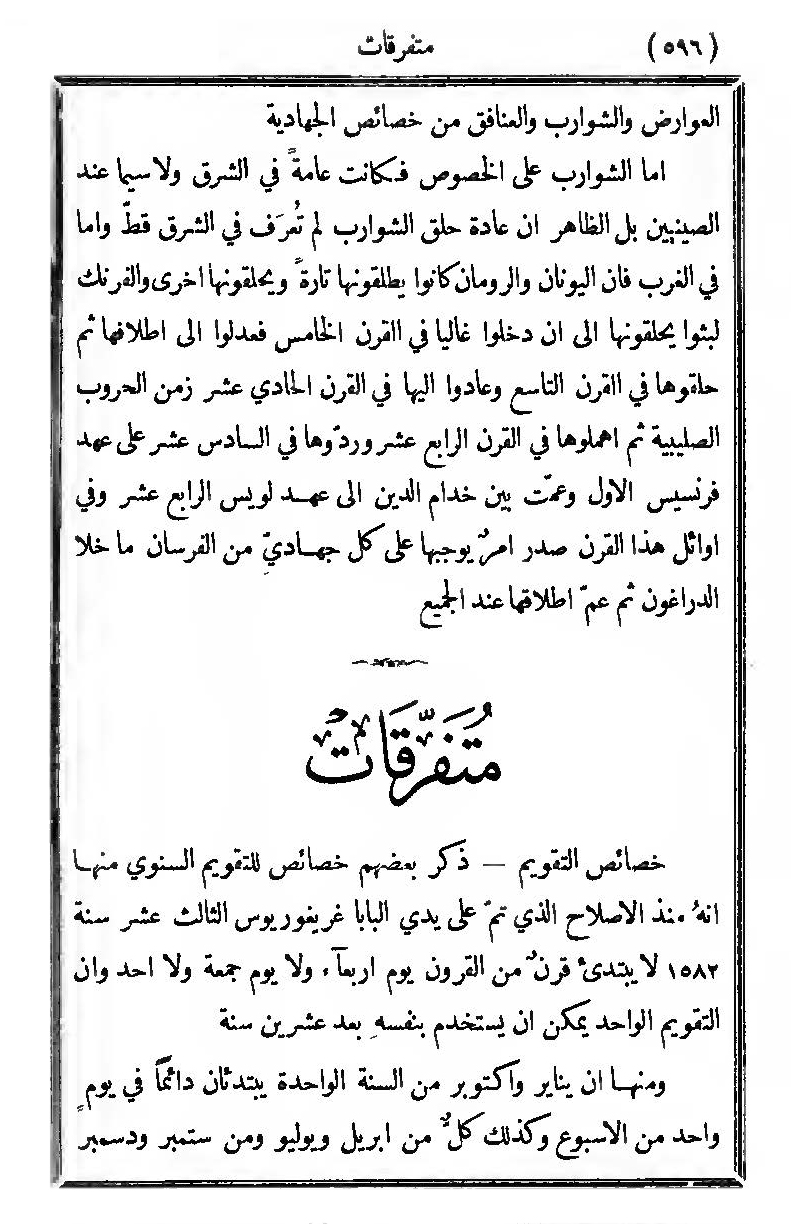 (٥٩٦) متفرقات
العوارض والشوارب والعنافق من خصائص الجهادية
اما الشوارب على الخصوص فكانت عامةً في الشرق ولاسيما عند
الصينيين بل الظاهر ان عادة حلق الشوارب لم تُعرَف في الشرق قطّ واما
في الغرب فان اليونان والرومان كانوا يطلقونها تارةً ويحلقونها اخرى والفرنك
لبثوا يحلقونها الى ان دخلوا غاليا في القرن الخامس فعدلوا الى اطلاقها ثم
حلقوها في القرن التاسع وعادوا اليها في القرن الحادي عشر زمن الحروب
الصليبية ثم اهملوها في القرن الرابع عشر وردّوها في السادس عشر على عهد
فرنسيس الاول وعمّت بين خدام الدين الى عهد لويس الرابع عشر وفي
اوائل هذا القرن صدر امرٌ يوجبها على كل جهاديّ من الفرسان ما خلا
الدراغون ثم عمّ اطلاقها عند الجميع
مُتَفَرِّقَات
خصائص التقويم — ذكر بعضهم خصائص للتقويم السنوي منها
انهُ منذ الاصلاح الذي تمّ على يدي البابا غريغوريوس الثالث عشر سنة
١٥٨٢ لا يبتدئ قرنٌ من القرون يوم اربعآء ولا يوم جمعة ولا احد وان
التقويم الواحد يمكن ان يستخدم بنفسهِ بعد عشرين سنة
ومنها ان يناير واكتوبر من السنة الواحدة يبتدئان دائماً في يومٍ
واحد من الاسبوع وكذلك كلٌّ من ابريل ويوليو ومن ستمبر ودسمبر